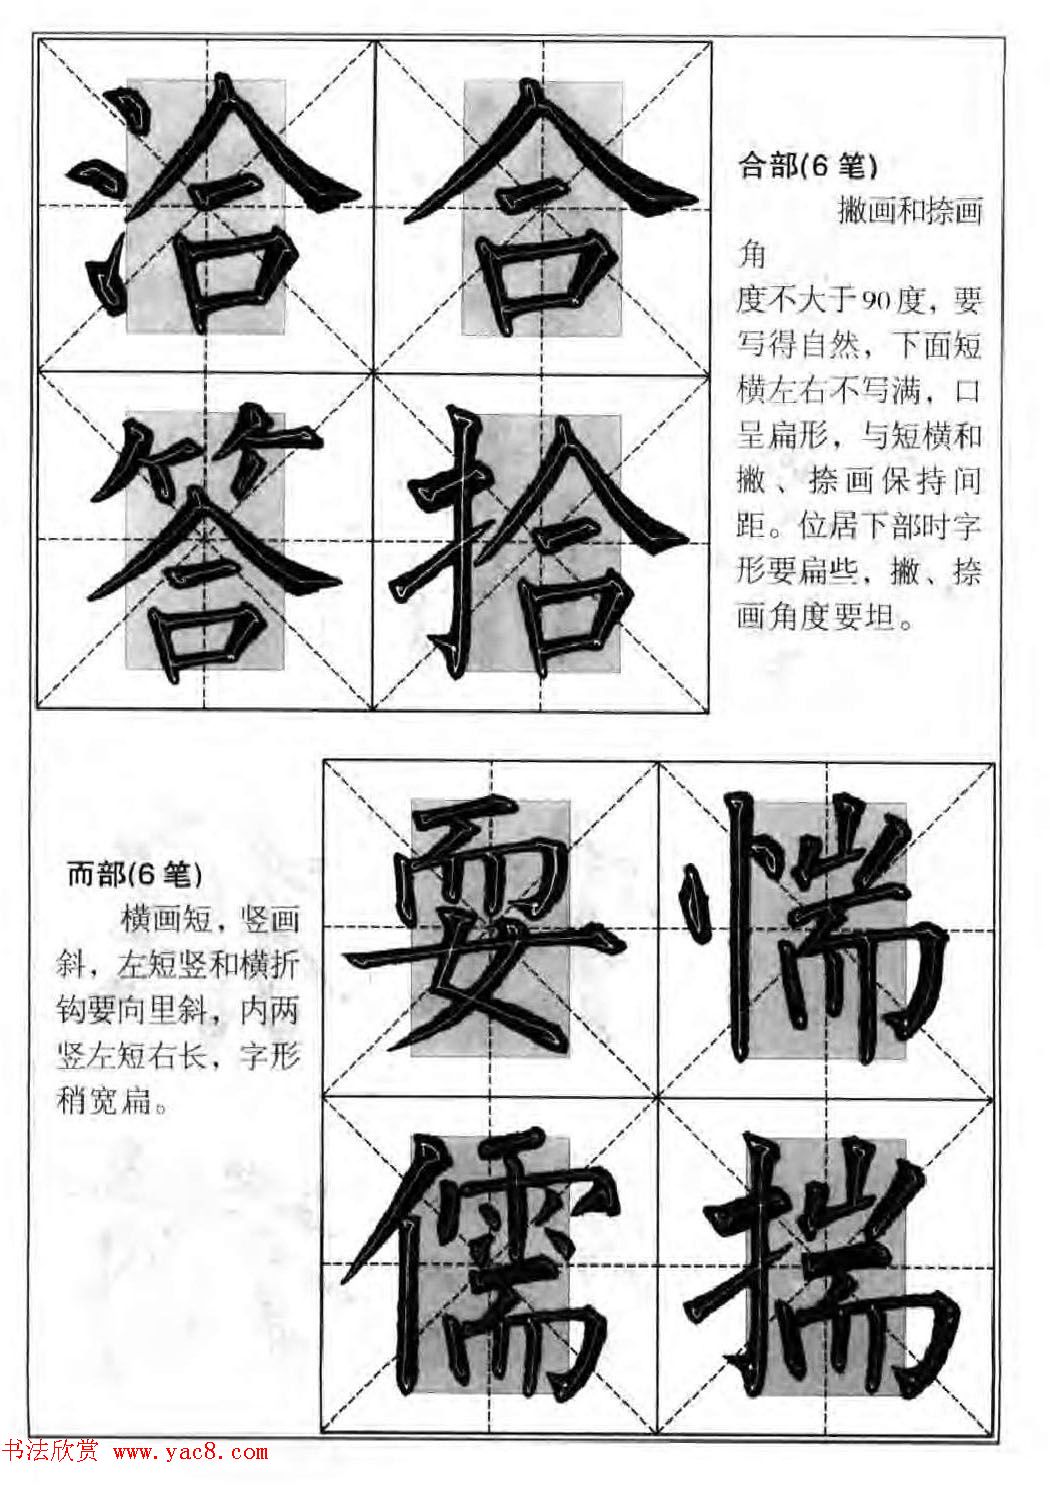 洽 合
答 拾
合部(6 笔)
撇画和捺画
角
度不大于90度，要
写得自然，下面短
横左右不写满，口
呈扁形，与短横和
撇、捺画保持间
距。位居下部时字
形要扁些，撇、捺
画角度要坦。
而部(6 笔)
横画短，竖画
斜，左短竖和横折
钩要向里斜，内两
竖左短右长，字形
稍宽扁。
耍 惴
儒 揣
书法欣赏 www.yac8.com